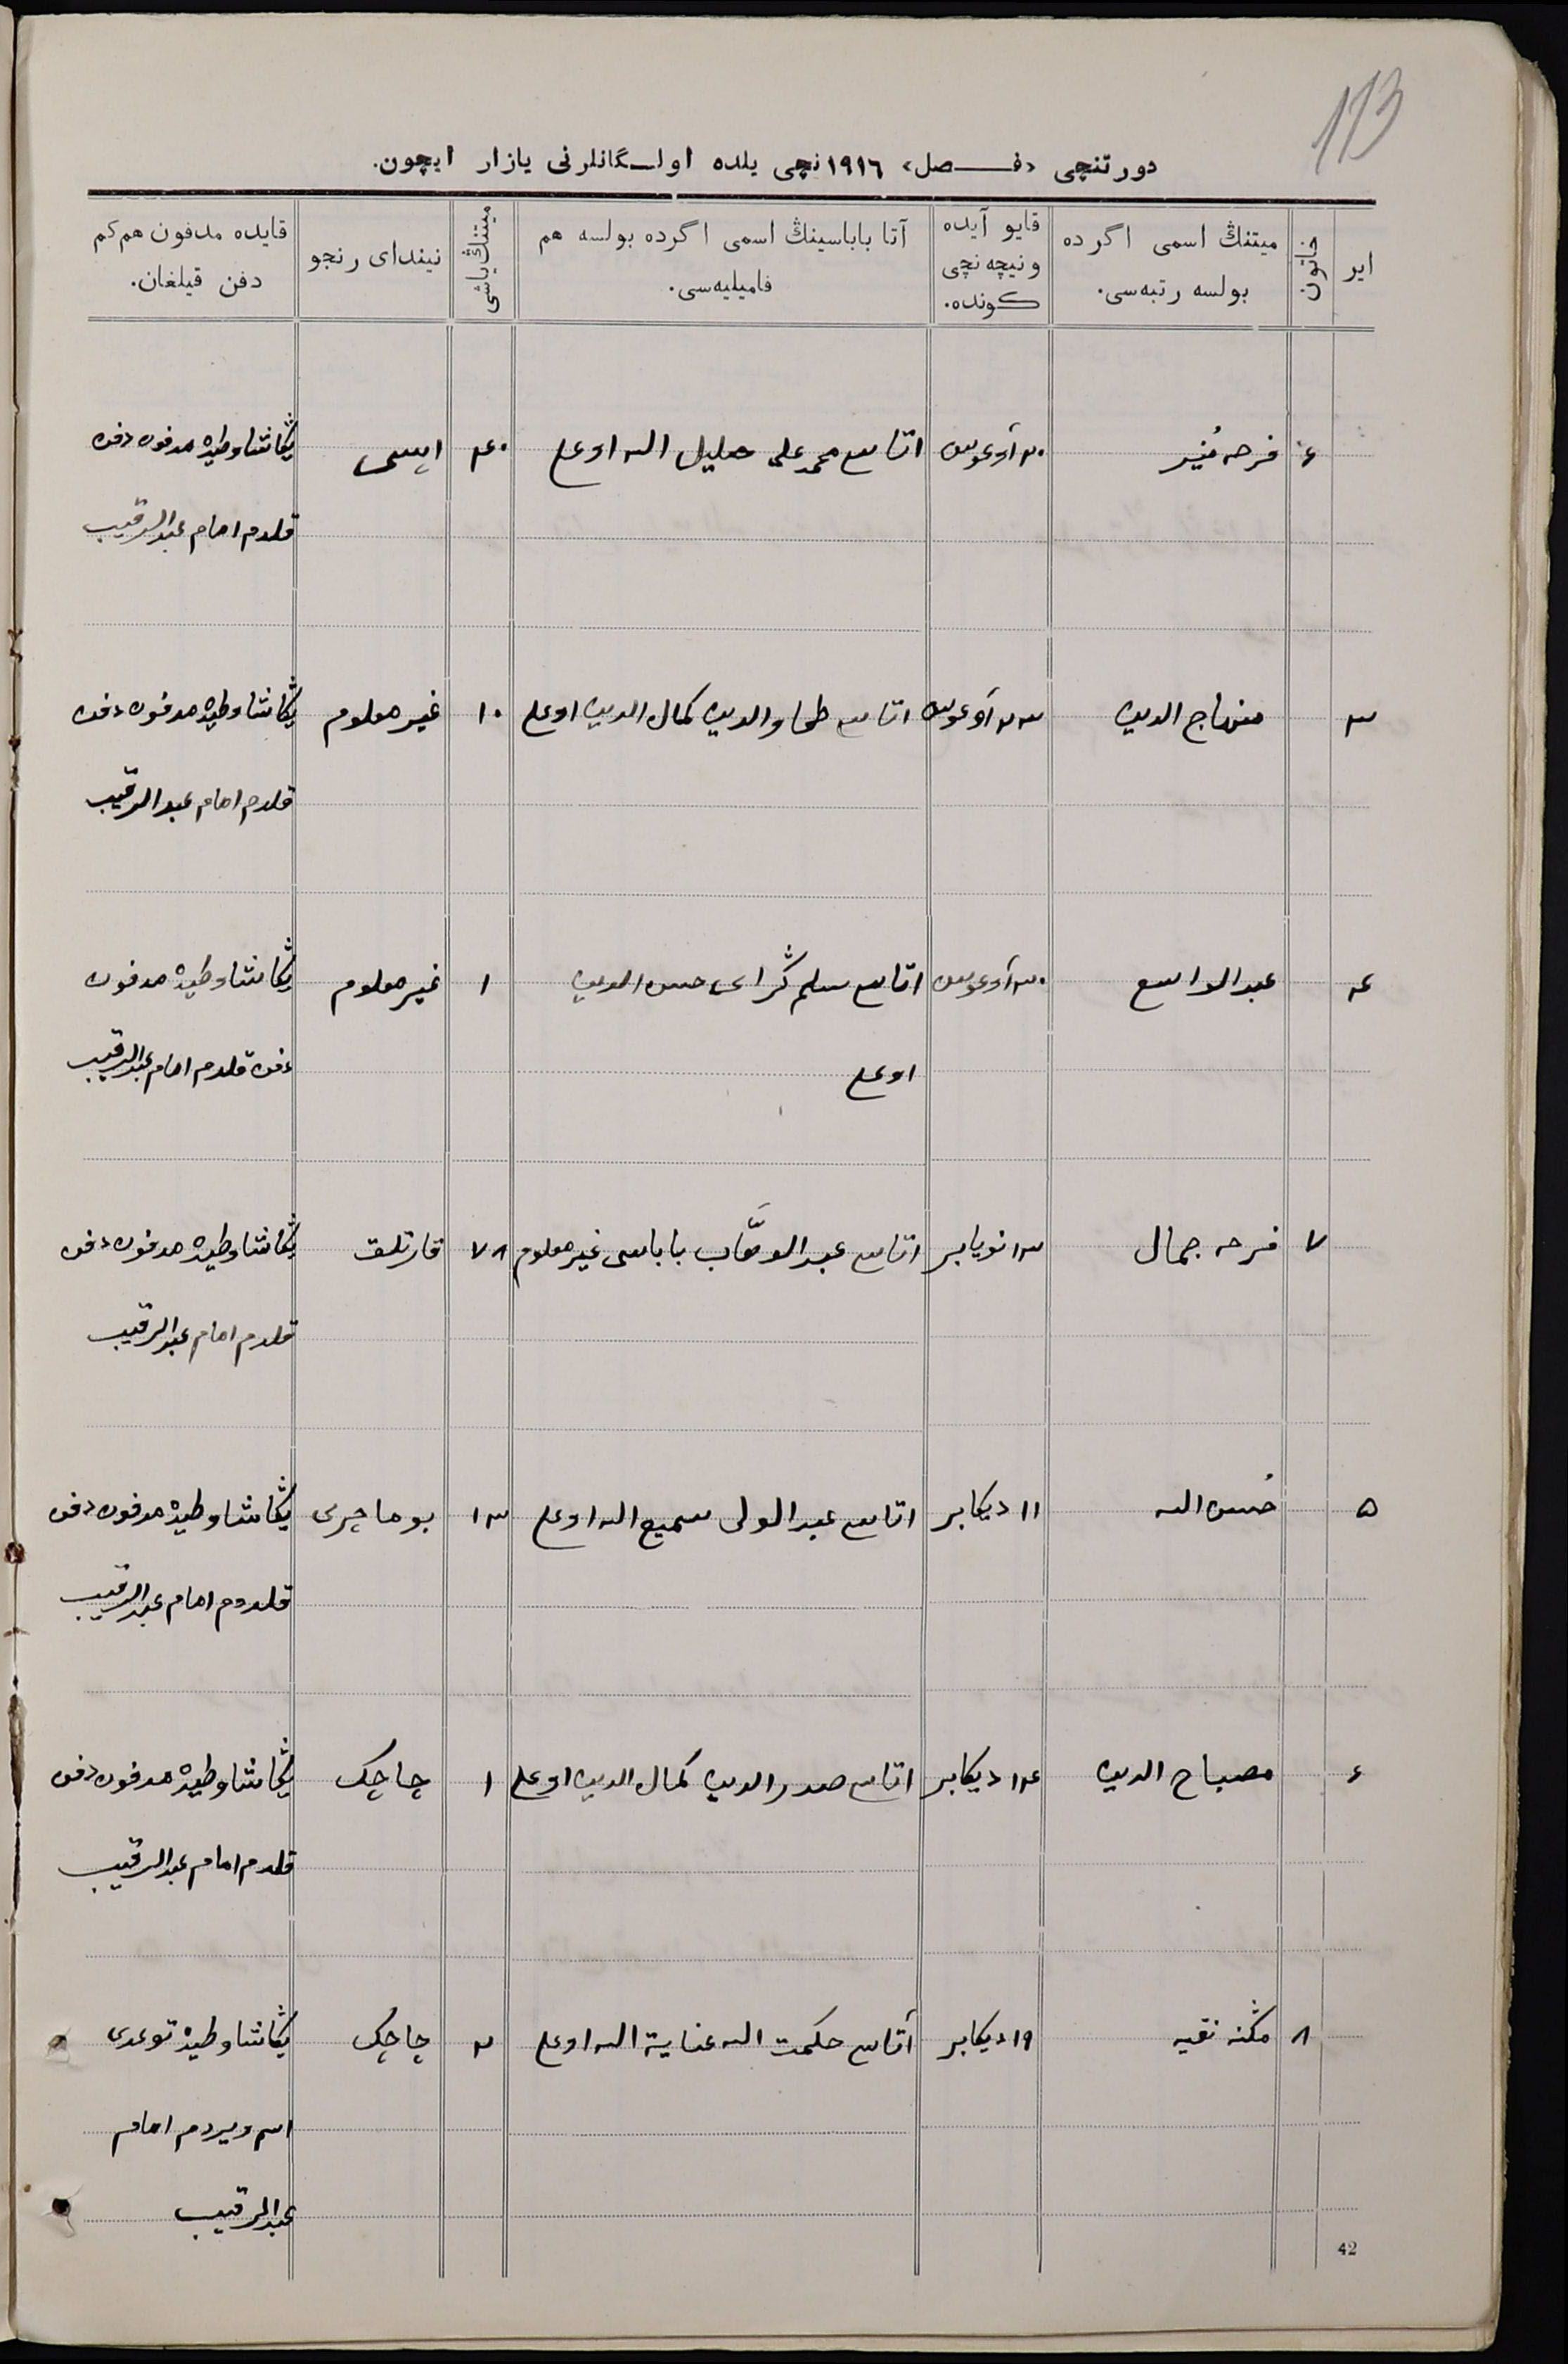 113
دورتنچی «فـصل» ١٩١٦نچی یلده اولـگانلرنی یازار ایچون.
ایر
خاتون
میتنڭ اسمی اگرده بولسه رتبه‌سی.
قایو آیده ونیچه‌نچی کونده.
آتا باباسینڭ اسمی اگرده بولسه هم فامیلیه‌سی.
میتنڭ یاشی
نیندای رنجو
قایده مدفون هم کم دفن قیلغان.
٦ فرحہ مُنیر ٢٠ آوغوس اتاسی محمد علی خلیل الله اوغلی ٤٠ ایسی یڭاشاوطیده مدفون دفن
قلدم امام عبدالرقیب
٣ منهاج الدین ٢٣ آوغوس اتاسی کمال الدین اوغلی ١٠ غیر معلوم یڭاشاوطیده مدفون دفن
قلدم امام عبدالرقیب
٤ عبدالواسع ٣٠ آوغوس اتاسی سلیم گرای حسن الدین ١ غیر معلوم یڭاشاوطیده مدفون
اوغلی دفن قلدم امام عبدالرقیب
٧ فرحہ جمال ١٣ نویابر اتاسی عبدالوهَّاب باباسی غیر معلوم ٧٨ قارتلق یڭاشاوطیده مدفون دفن
قلدم امام عبدالرقیب
٥ حُسن الله ١١ دیکابر اتاسی عبدالولی سمیع الله اوغلی ١٣ یڭاشاوطیده مدفون دفن
قلدم امام عبدالرقیب
٦ مصباح الدین ١٤ دیکابر اتاسی صدرالدین کمال الدین اوغلی ١ چاچک یڭاشاوطیده مدفون دفن
قلدم امام عبدالرقیب
٨ نقیه ١٩ دیکابر آتاسی حکمت الله عنایة الله اوغلی ٢ چاچک یڭاشاوطیده توغدی
اسم ویردم امام
عبدالرقیب
42